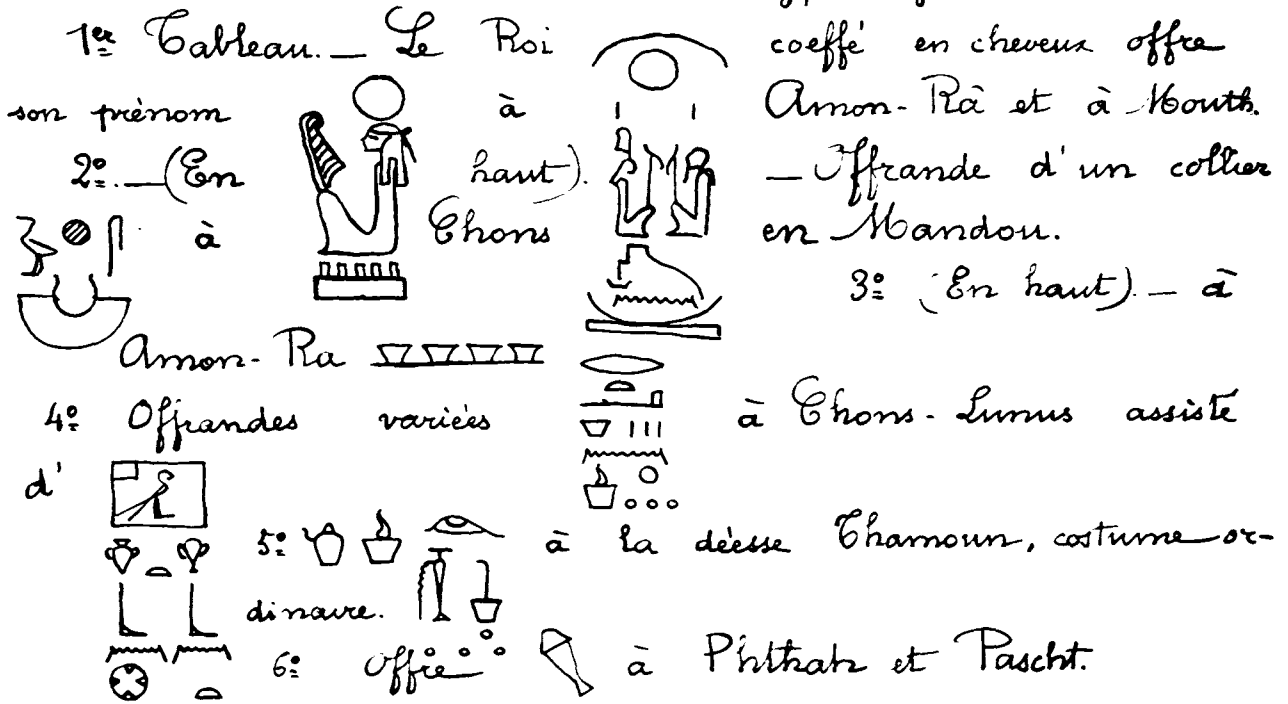 1er Tableau. — Le Roi coeffé en cheveux offre
son prénom à Amon-Rà et à Mouth.
2º. — (En haut). — Offrande d'un collier
à Chons en Mandou.
3º (En haut). — à
Amon-Ra
4º Offrandes variées à Chons-Lunus assisté
d'
5º à la déesse Thamoun, costume or-
dinaire.
6º Offre à Phthah et Pascht.